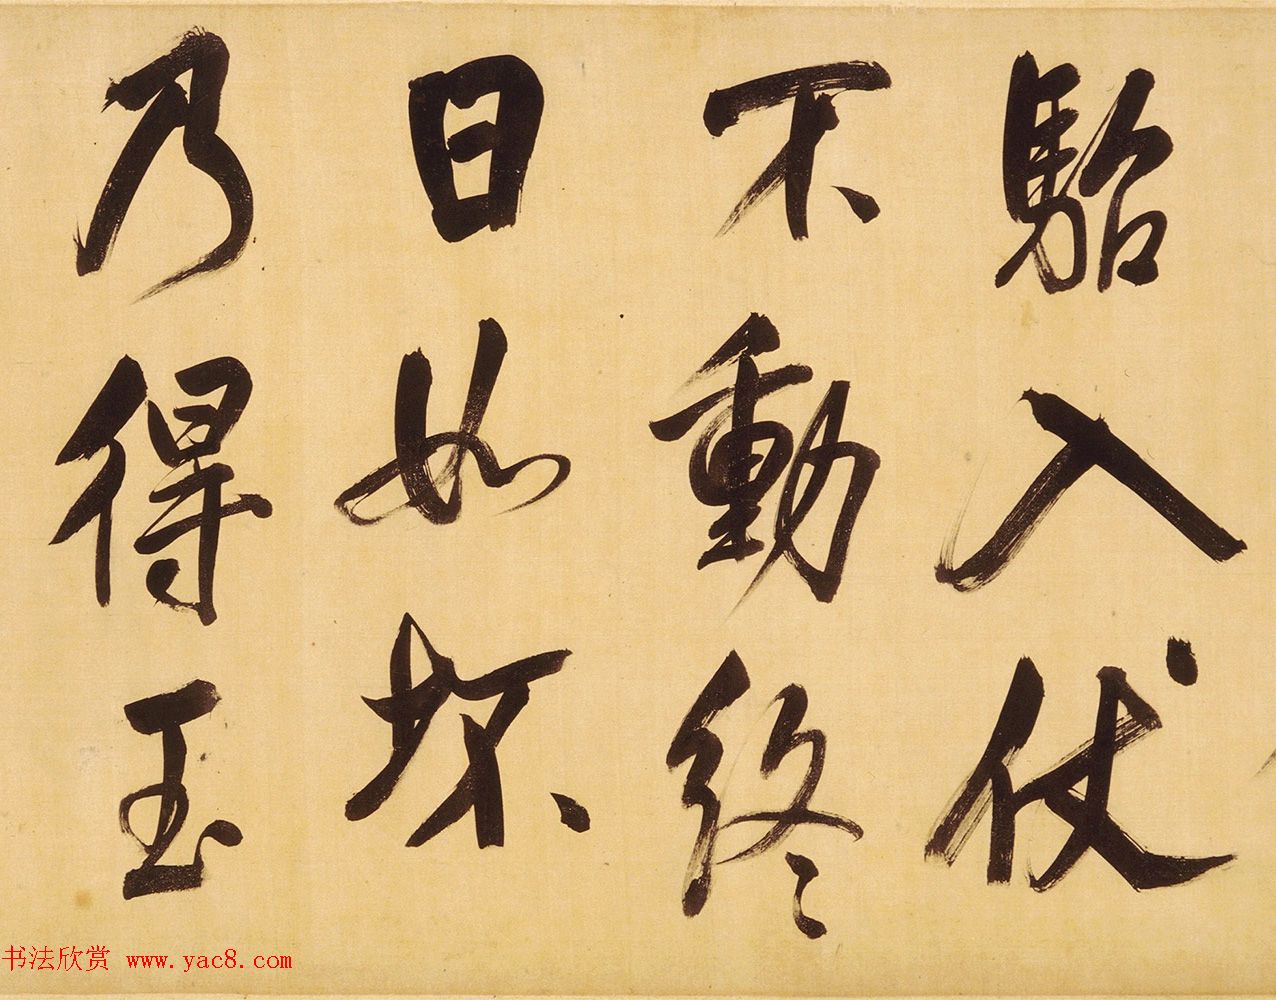 駘入伏
不動終
日如坏
乃得玉
书法欣赏 www.yac8.com